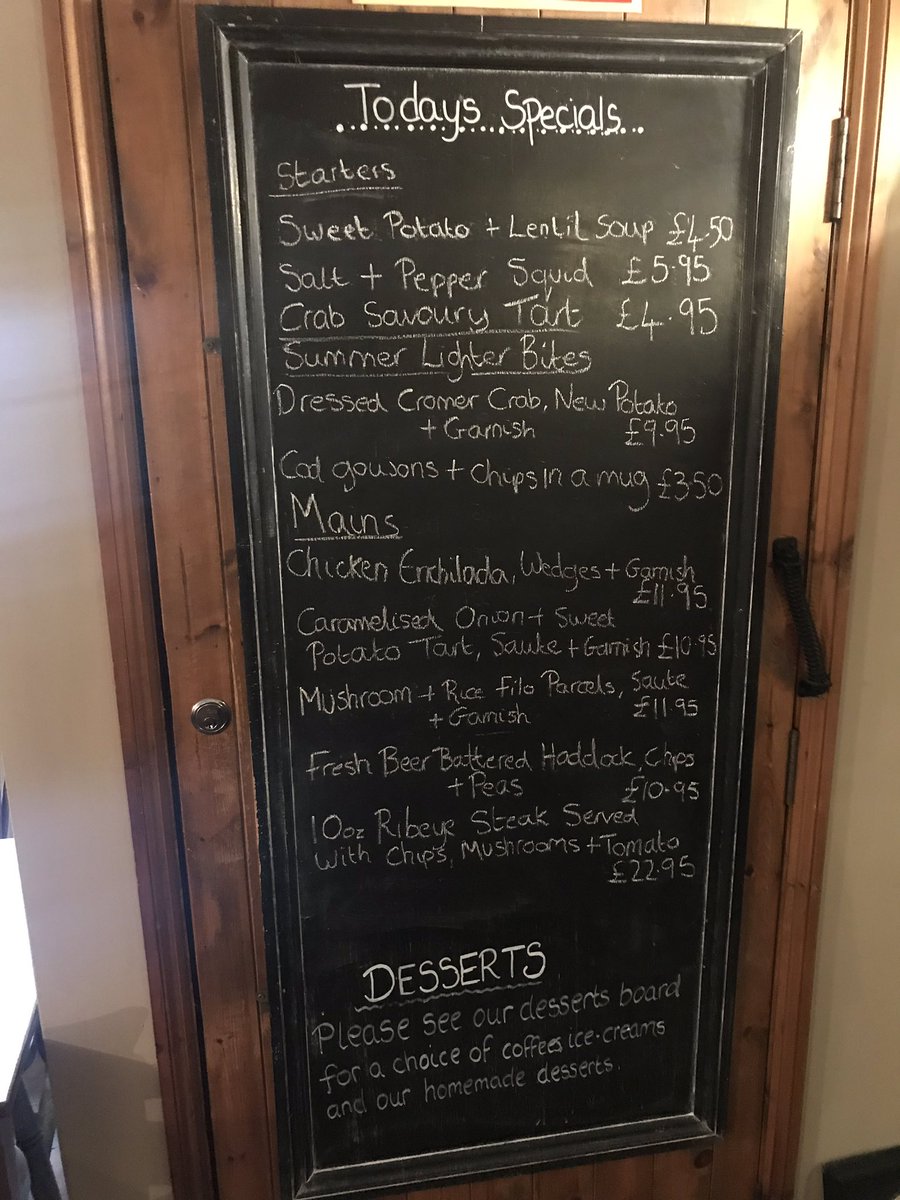 Todays Specials
Starters
Sweet Potato + Lentil Soup £4.50
Salt + Pepper Squid £5.95
Crab Savoury Tart £4.95
Summer Lighter Bites
Dressed Cromer Crab, New Potato
+ Garnish £9.95
Cod goujons + chips in a mug £3.50
Mains
Chicken Enchilada, Wedges + Garnish
£11.95
Caramelised Onion + Sweet
Potato Tart, Saute + Garnish £10.95
Mushroom + Rice Filo Parcels, Saute
+ Garnish £11.95
Fresh Beer Battered Haddock, Chips
+ Peas £10.95
10oz Ribeye Steak Served
with Chips, Mushrooms + Tomato
£22.95
DESSERTS
Please see our desserts board
for a choice of coffees ice-creams
and our homemade desserts.